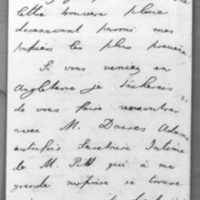 lettre trouvera place
dorénavant parmi mes
papiers les plus précieux.
Si vous veniez en
Angleterre je tâcherais
de vous faire rencontrer
avec M. Davies
autrefois Secrétaire Intime
de M. Pitt qui à ma
grande surprise se trouve